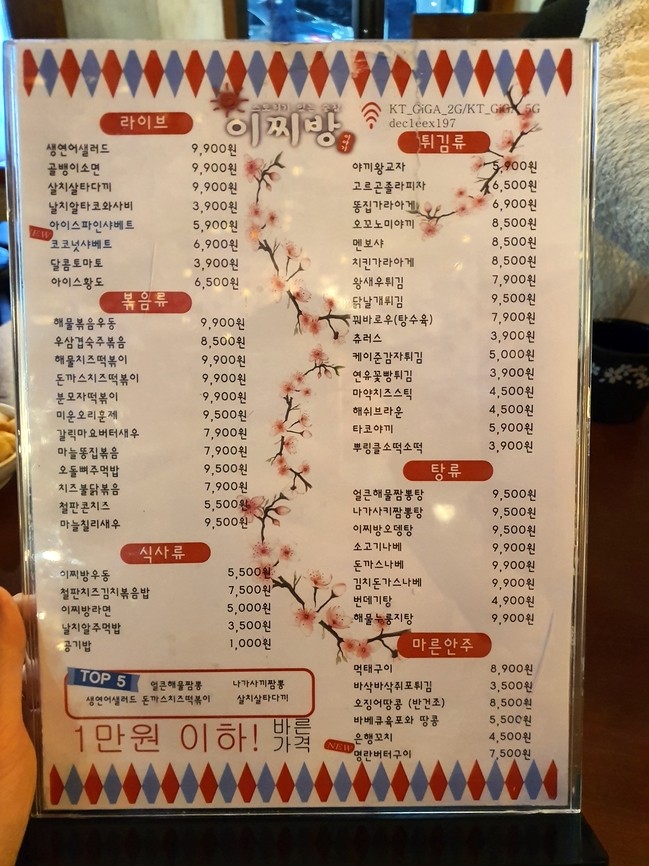 이찌방
KT_GiGA_2G/KT_GiGA_5G
dec1eex197
라이브
생연어샐러드 9,900원
골뱅이소면 9,900원
살치살타다끼 9,900원
날치알타코와사비 3,900원
아이스파인샤베트 5,900원
코코넛샤베트 6,900원
달콤토마토 3,900원
아이스황도 6,500원
볶음류
해물볶음우동 9,900원
우삼겹숙주볶음 8,500원
해물치즈떡볶이 9,900원
돈까스치즈떡볶이 9,900원
분모자떡볶이 9,900원
미윤오리훈제 9,500원
갈릭마요버터새우 7,900원
마늘똥집볶음 7,900원
오돌뼈주먹밥 9,500원
치즈불닭볶음 7,900원
철판콘치즈 5,500원
마늘칠리새우 9,500원
식사류
이찌방우동 5,500원
철판치즈김치볶음밥 7,500원
이찌방라면 5,000원
날치알주먹밥 3,500원
공기밥 1,000원
TOP 5
얼큰해물짬뽕 나가사끼짬뽕
생연어샐러드 돈까스치즈떡볶이 살치살타다끼
1만원 이하! 바른 가격
튀김류
야끼왕교자 5,900원
고르곤졸라피자 6,500원
똥집가라아게 6,900원
오꼬노미야끼 8,500원
멘보샤 8,500원
치킨가라아게 8,500원
왕새우튀김 7,900원
닭날개튀김 9,500원
꿔바로우(탕수육) 7,900원
츄러스 3,900원
케이준감자튀김 5,000원
연유꽃빵튀김 3,900원
마약치즈스틱 4,500원
해쉬브라운 4,500원
타코야끼 5,900원
뿌링클소떡소떡 3,900원
탕류
얼큰해물짬뽕탕 9,500원
나가사키짬뽕탕 9,500원
이찌방오뎅탕 9,500원
소고기나베 9,900원
돈까스나베 9,900원
김치돈가스나베 9,900원
번데기탕 4,900원
해물누룽지탕 9,900원
마른안주
먹태구이 8,900원
바삭바삭쥐포튀김 3,500원
오징어땅콩 (반건조) 8,500원
바베큐육포와 땅콩 5,500원
은행꼬치 4,500원
NEW
명란버터구이 7,500원